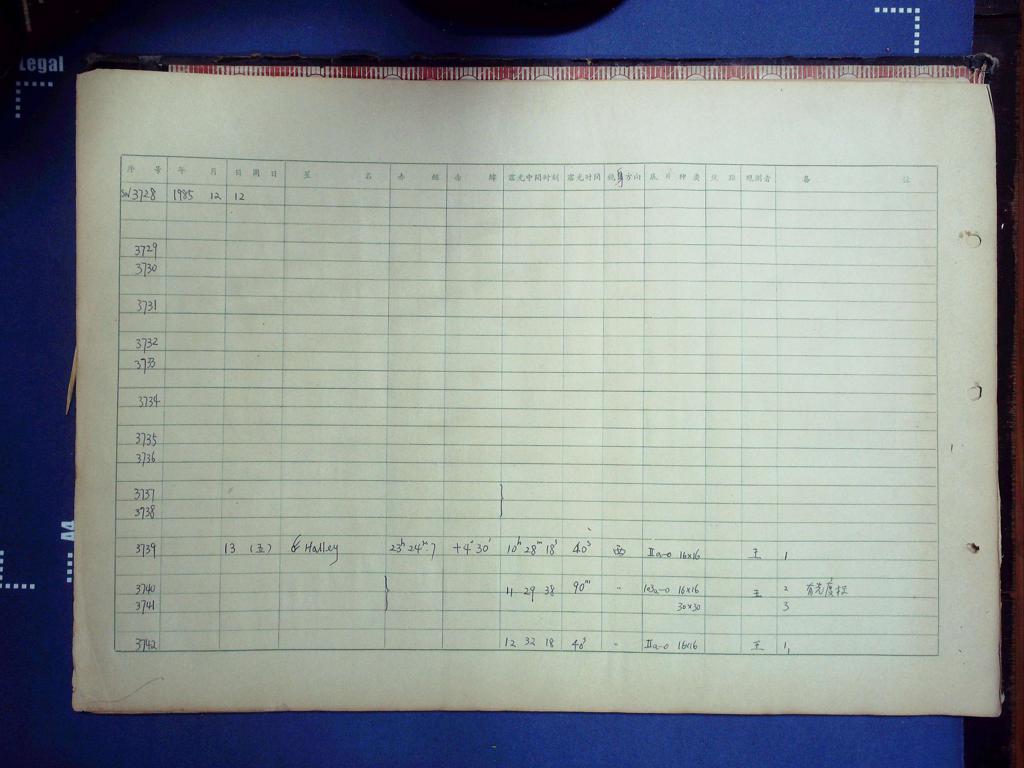 Legal
序 号 年 月 日 周 日 星 名 赤 经 赤 纬 露光中间时刻 露光时间 镜身方向 底 片 种 类 焦 距 观测者 备 注
SN3728 1985 12 12
3729
3730
3731
3732
3733
3734
3735
3736
3737
3738
3739 13 (五) Halley 23h 24m.7 +4° 30' 10h 28m 18s 40s 西 IIa-o 16×16 王 1
3740 11 29 38 90m " 103a-o 16×16 王 2
3741 30×30 3
3742 12 32 18 40s " IIa-o 16×16 王 1
A4